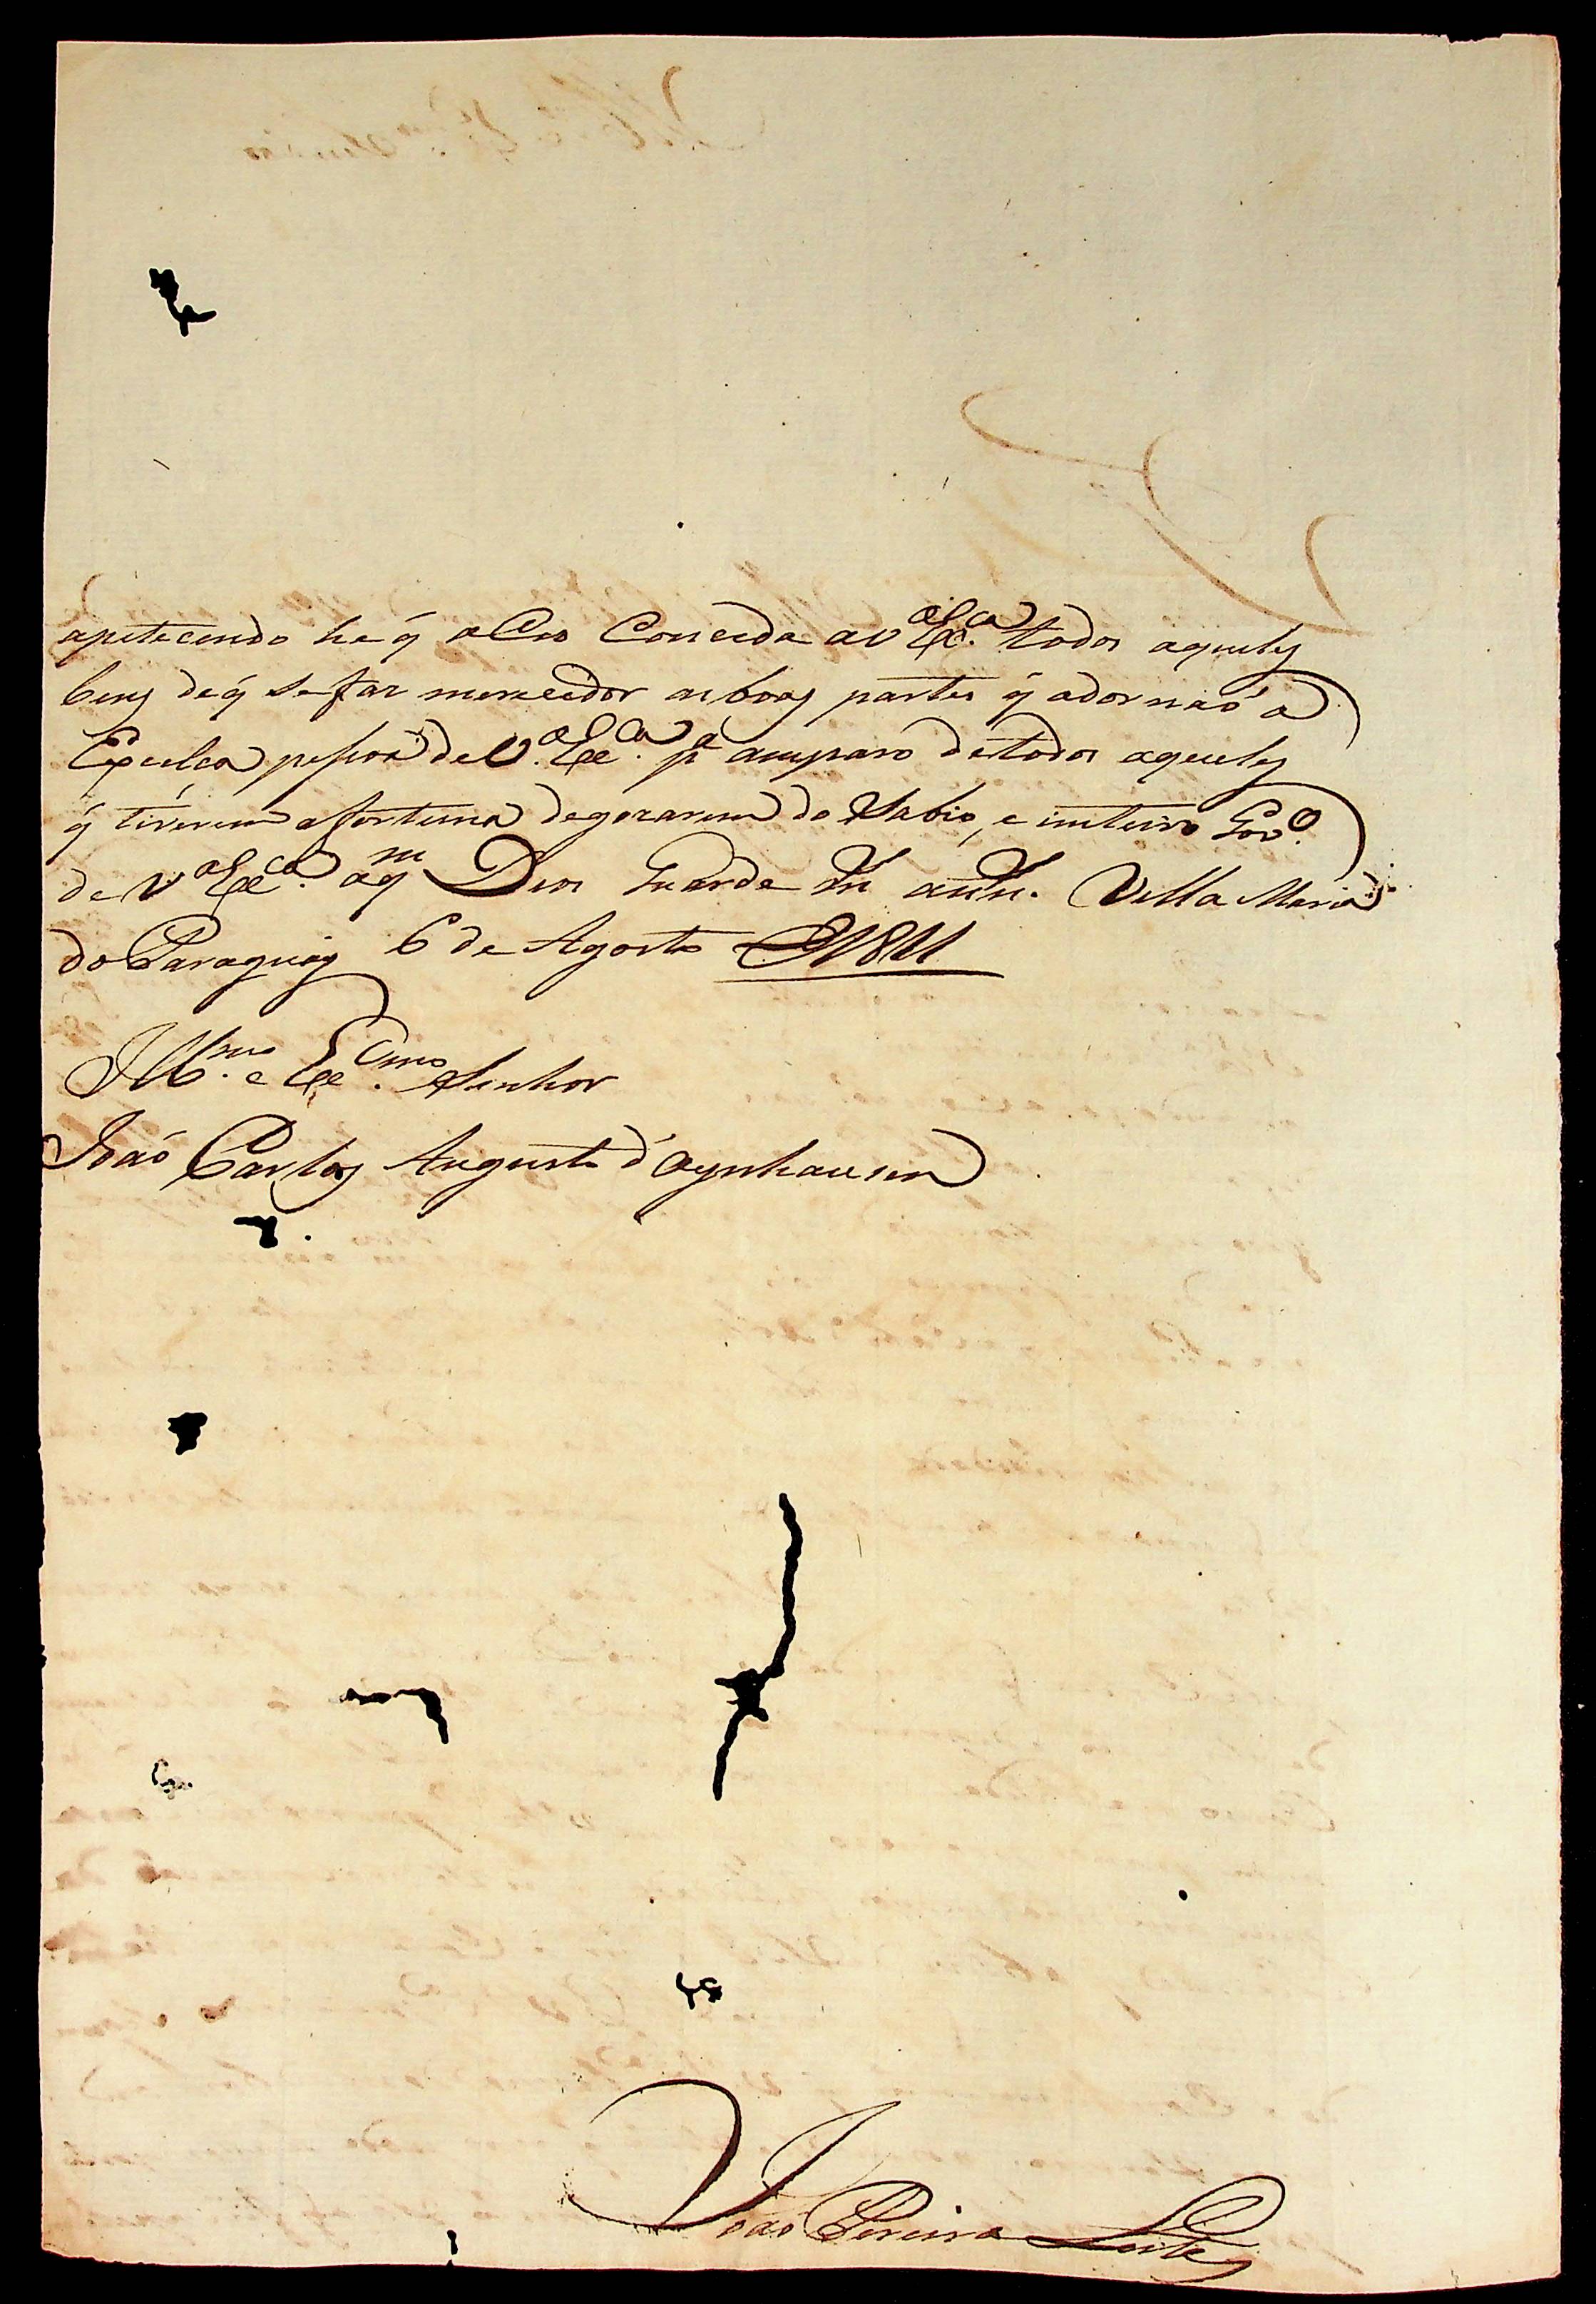 apetecendo he q̃ o Ceo Conceda a V Ex.ª todos aqueles
bens de q̃ se faz merecedor as boas partes q̃ adornaõ a
Excelca pesoa de V. Ex.ª p.ª amparo de todos aqueles
q̃ tiverem a fortuna de gozarem do Sabio, e inteiro Gov.º
de V Ex.ª a q.m Deos Guarde m.s an.s. Villa Maria
do Paraguay 6 de Agosto D 1811
Ill.mo e Ex.mo Senhor
João Carlos Augusto d'Oynhausen
João Pereira Leite